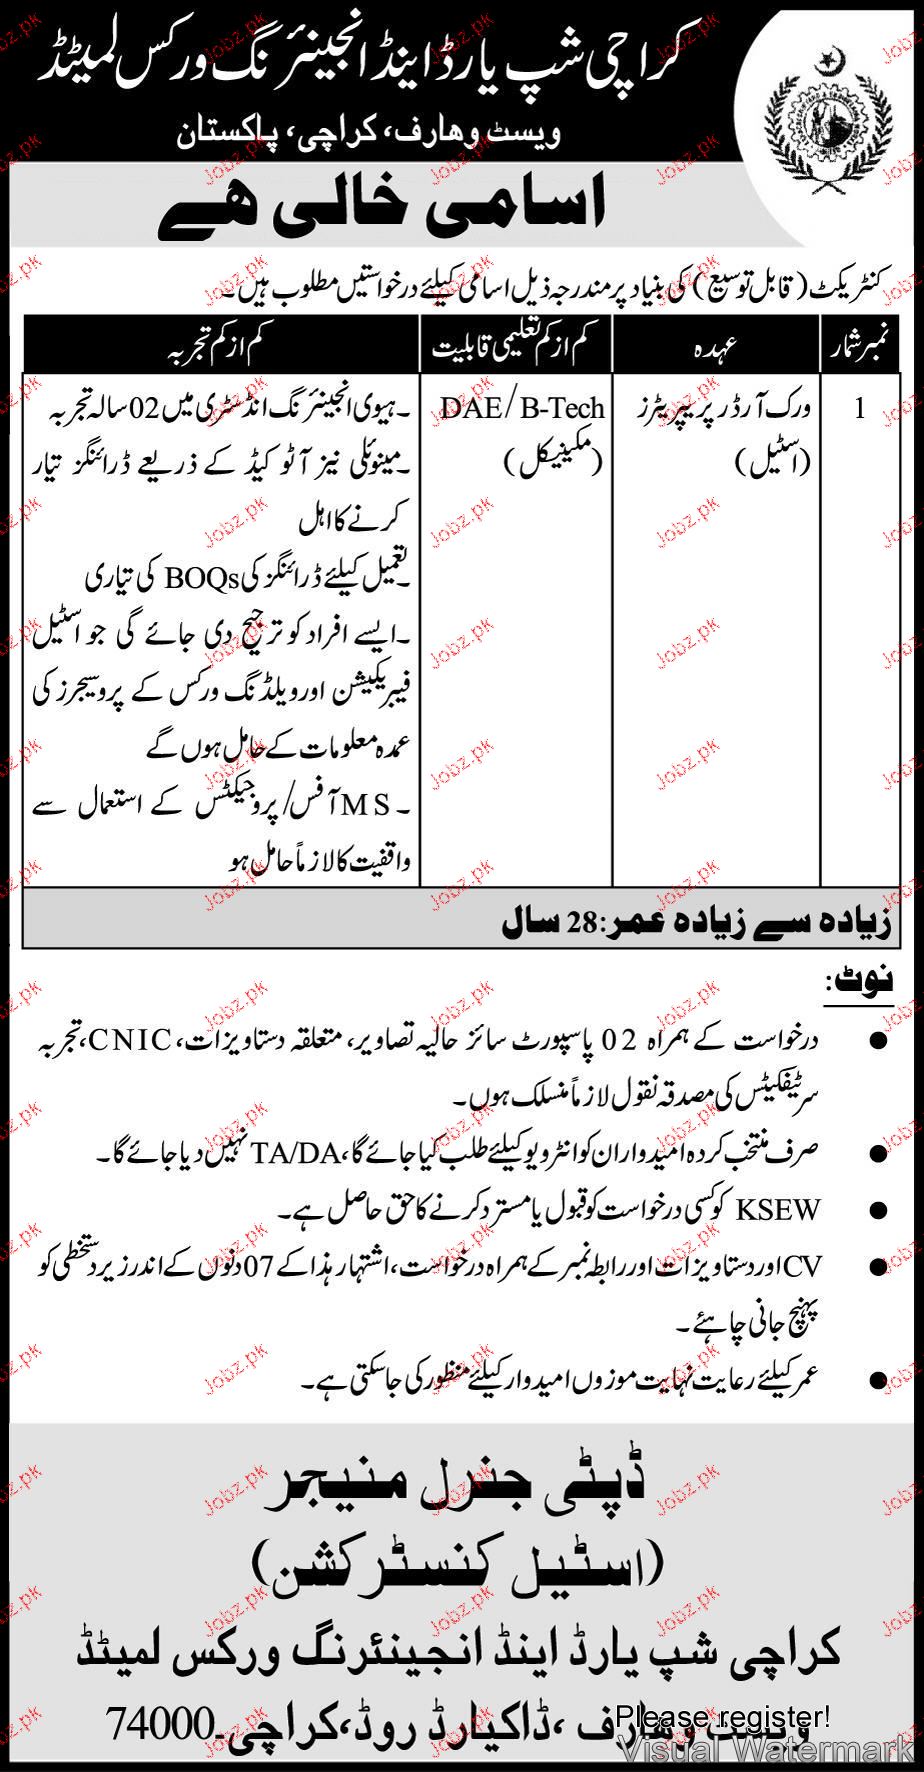 کراچی شپ یارڈ اینڈ انجینئرنگ ورکس لمیٹڈ
ویسٹ وھارف، کراچی، پاکستان
اسامی خالی ھے
کنٹریکٹ (قابل توسیع) کی بنیاد پر مندرجہ ذیل اسامی کیلئے درخواستیں مطلوب ہیں۔
نمبر شمار عہدہ کم از کم تعلیمی قابلیت کم از کم تجربہ
1 ورک آرڈر پریپریٹرز DAE/B-Tech ۔ہیوی انجینئرنگ انڈسٹری میں 02 سالہ تجربہ
(اسٹیل) (مکینیکل) ۔مینوئلی نیز آٹو کیڈ کے ذریعے ڈرائنگز تیار
کرنے کا اہل
۔تعمیل کیلئے ڈرائنگز کی BOQs کی تیاری
۔ایسے افراد کو ترجیح دی جائے گی جو اسٹیل
فیبریکیشن اور ویلڈنگ ورکس کے پروسیجرز کی
عمدہ معلومات کے حامل ہوں گے
۔MS آفس/پروجیکٹس کے استعمال سے
واقفیت کا لازماً حامل ہو
زیادہ سے زیادہ عمر:28 سال
نوٹ:
● درخواست کے ہمراہ 02 پاسپورٹ سائز حالیہ تصاویر، متعلقہ دستاویزات، CNIC، تجربہ
سرٹیفکیٹس کی مصدقہ نقول لازماً منسلک ہوں۔
● صرف منتخب کردہ امیدواران کو انٹرویو کیلئے طلب کیا جائے گا، TA/DA نہیں دیا جائے گا۔
● KSEW کو کسی درخواست کو قبول یا مسترد کرنے کا حق حاصل ہے۔
● CV اور دستاویزات اور رابطہ نمبر کے ہمراہ درخواست، اشتہار ہذا کے 07 دنوں کے اندر زیر دستخطی کو
پہنچ جانی چاہئے۔
● عمر کیلئے رعایت نہایت موزوں امیدوار کیلئے منظور کی جاسکتی ہے۔
ڈپٹی جنرل منیجر
(اسٹیل کنسٹرکشن)
کراچی شپ یارڈ اینڈ انجینئرنگ ورکس لمیٹڈ
ویسٹ وھارف ،ڈاکیارڈ روڈ،کراچی۔74000
Please register!
Visual Watermark
Jobz.pk